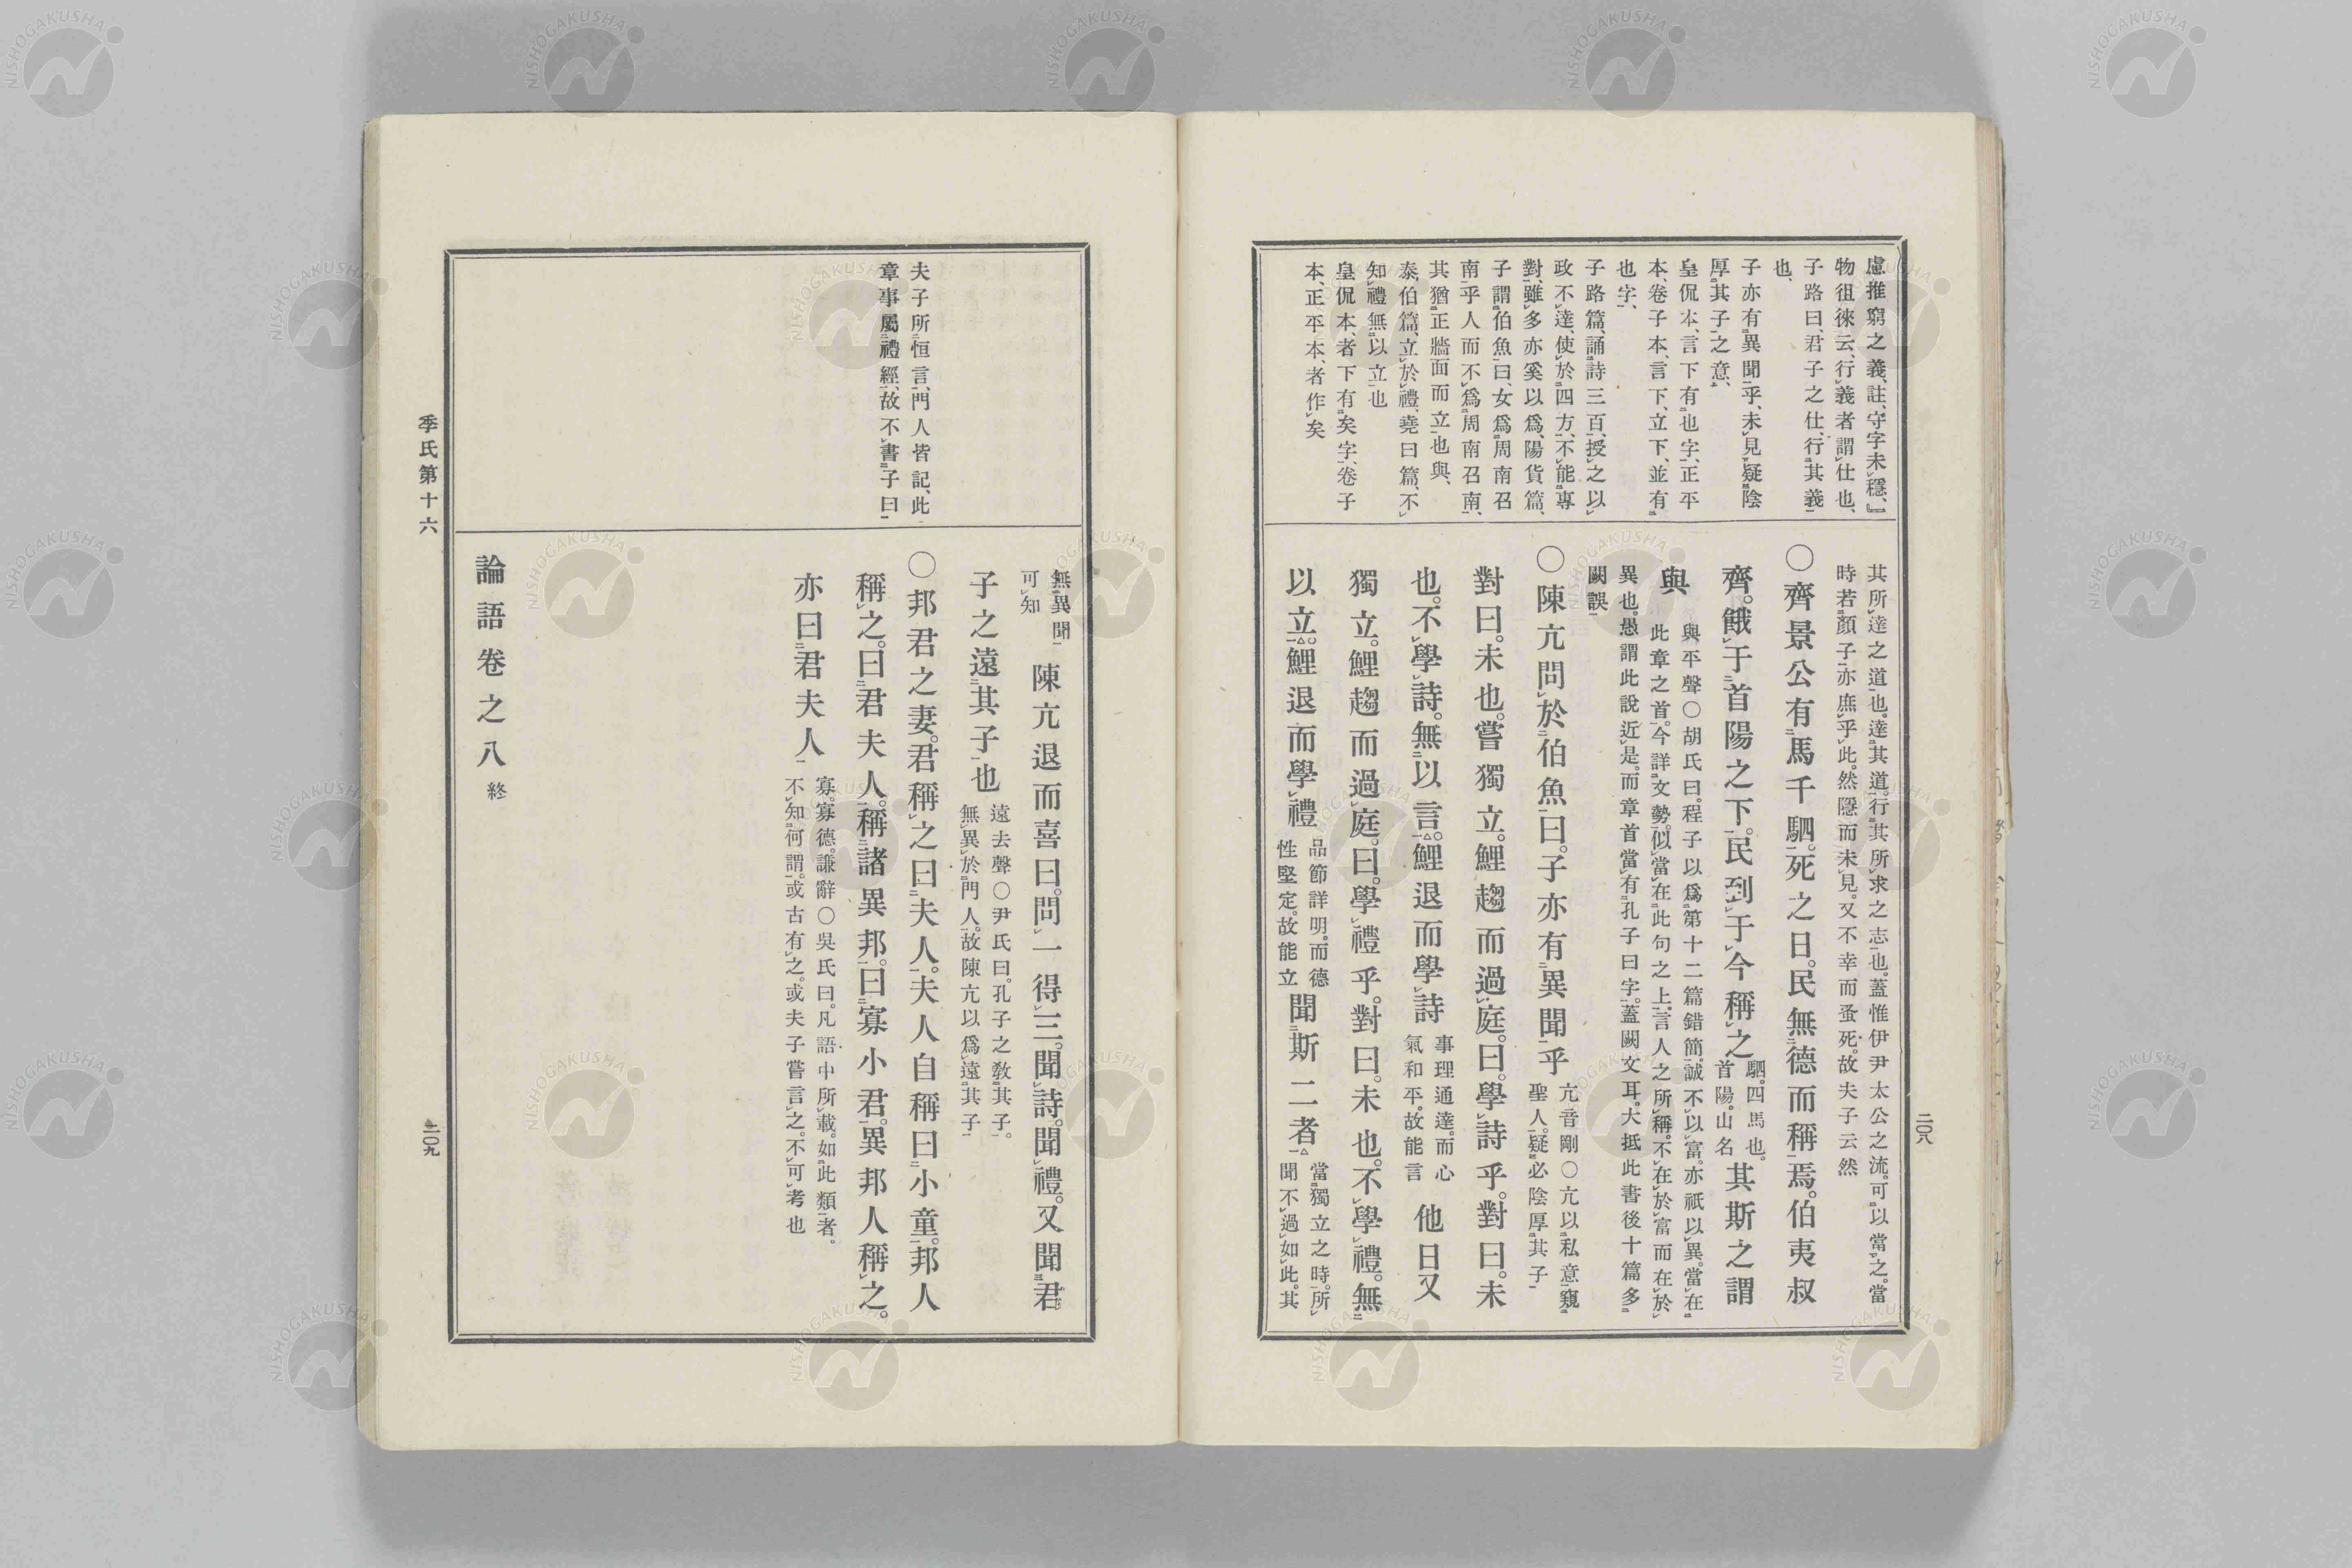 慮推窮之義、註、守字未穩、』
物徂徠云、行義者謂仕也、
子路曰、君子之仕、行其義
也、
子亦有異聞乎、未見疑陰
厚其子之意、
皇侃本、言下有也字、正平
本、卷子本、言下、立下、並有
也字、
子路篇、誦詩三百、授之以
政不達、使於四方、不能專
對、雖多亦奚以爲、陽貨篇、
子謂伯魚曰、女爲周南召
南乎、人而不爲周南召南、
其猶正牆面而立也與、
泰伯篇、立於禮、堯曰篇、不
知禮無以立也
皇侃本、者下有矣字、卷子
本、正平本、者作矣
其所達之道也。達其道。行其所求之志也。蓋惟伊尹太公之流。可以當之。當
時若顏子亦庶乎此。然隱而未見。又不幸而蚤死。故夫子云然
〇齊景公有馬千駟。死之日。民無德而稱焉。伯夷叔
齊。餓于首陽之下。民到于今稱之
駟。四馬也。
首陽。山名
其斯之謂
與
與平聲〇胡氏曰。程子以爲第十二篇錯簡。誠不以富。亦祇以異。當在
此章之首。今詳文勢。似當在此句之上。言人之所稱。不在於富而在於
異也。愚謂此說近是。而章首當有孔子曰字。蓋闕文耳。大抵此書後十篇多
闕誤
〇陳亢問於伯魚曰。子亦有異聞乎
亢音剛〇亢以私意窺
聖人。疑必陰厚其子
對曰。未也。嘗獨立。鯉趨而過庭。曰。學詩乎。對曰。未
也。不學詩。無以言。鯉退而學詩
事理通達。而心
氣和平。故能言
他日又
獨立。鯉趨而過庭。曰。學禮乎。對曰。未也。不學禮。無
以立。鯉退而學禮
品節詳明。而德
性堅定。故能立
聞斯二者
當獨立之時。所
聞不過如此。其
二〇八
夫子所恒言、門人皆記、此
章事屬禮經、故不書子曰
無異聞
可知
陳亢退而喜曰。問一得三。聞詩。聞禮。又聞君
子之遠其子也
遠去聲〇尹氏曰。孔子之敎其子。
無異於門人。故陳亢以爲遠其子
〇邦君之妻。君稱之曰夫人。夫人自稱曰小童。邦人
稱之。曰君夫人。稱諸異邦。曰寡小君。異邦人稱之。
亦曰君夫人
寡。寡德。謙辭〇吳氏曰。凡語中所載。如此類者。
不知何謂。或古有之。或夫子嘗言之。不可考也
論語卷之八終
季氏第十六
二〇九